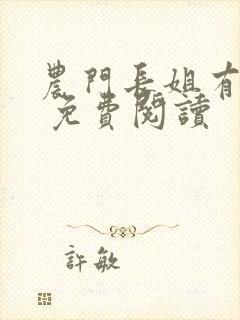 農門長姐有
免費閱讀
許敏